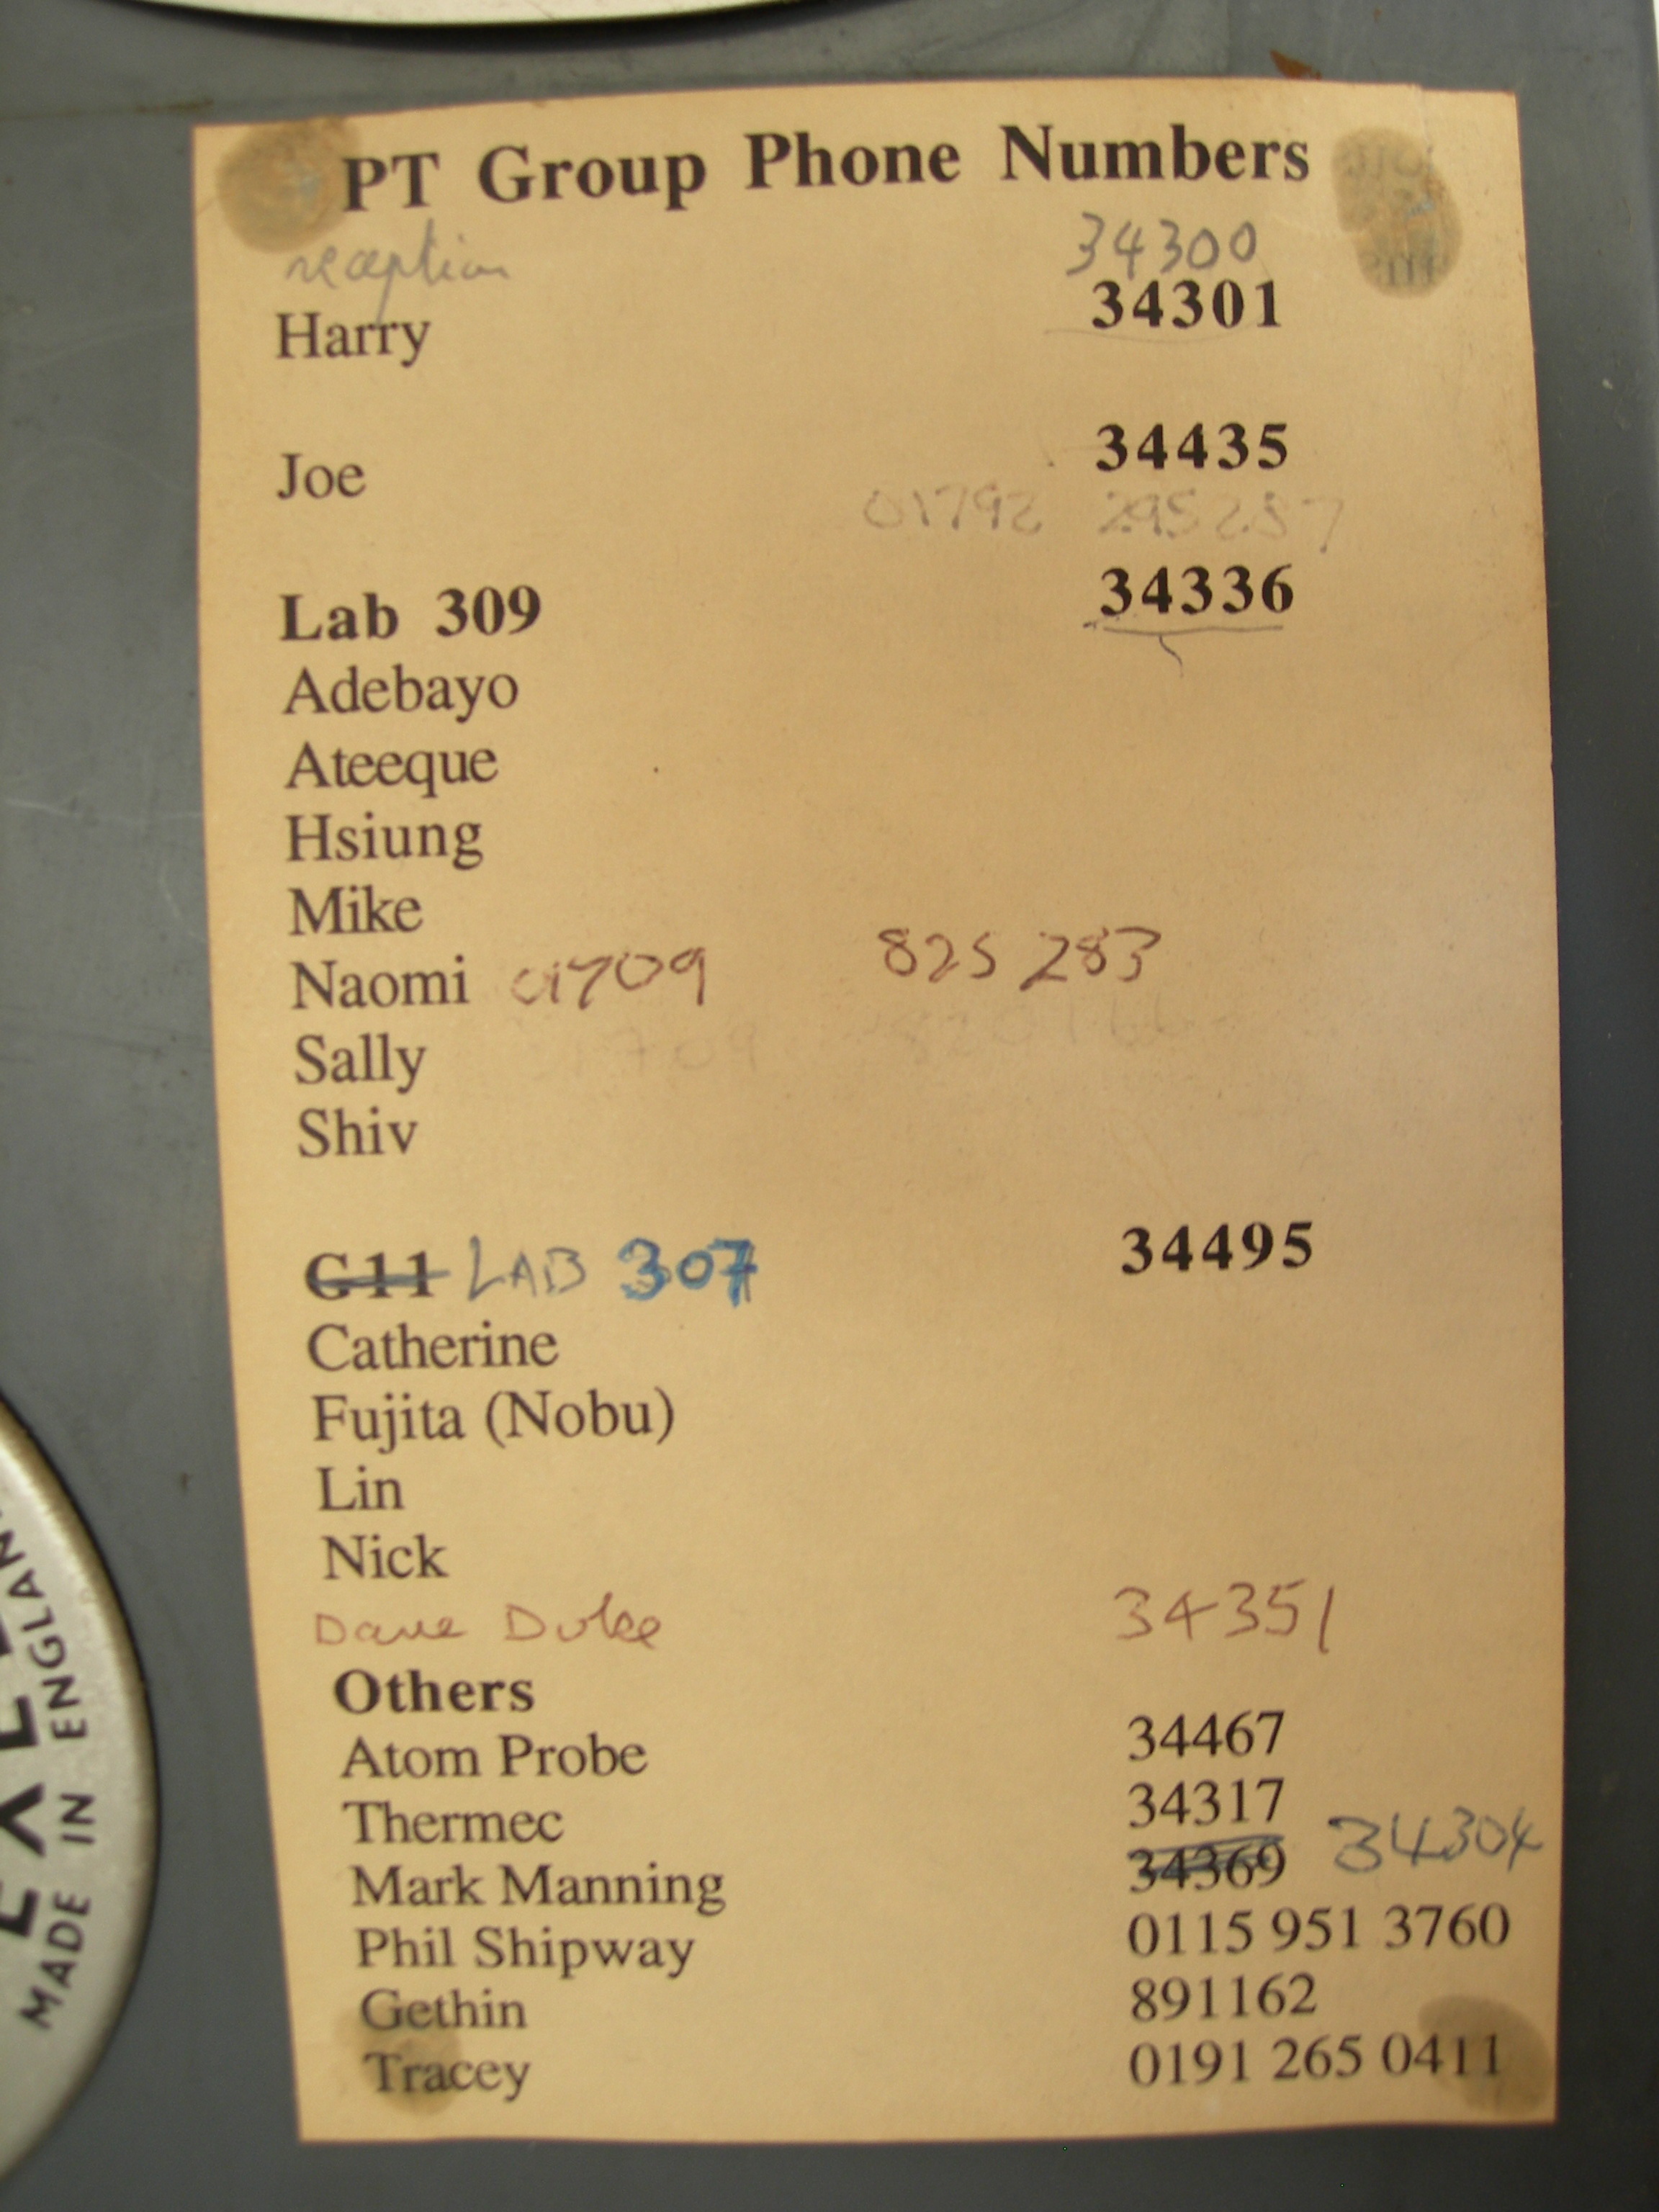 PT Group Phone Numbers
reception 34300
Harry 34301
Joe 34435
01792 295287
Lab 309 34336
Adebayo
Ateeque
Hsiung
Mike
Naomi 01709 825 283
Sally
Shiv
G11 LAB 307 34495
Catherine
Fujita (Nobu)
Lin
Nick
Dave Duke 34351
Others
Atom Probe 34467
Thermec 34317
Mark Manning 34369 34304
Phil Shipway 0115 951 3760
Gethin 891162
Tracey 0191 265 0411
MADE IN ENGLAN